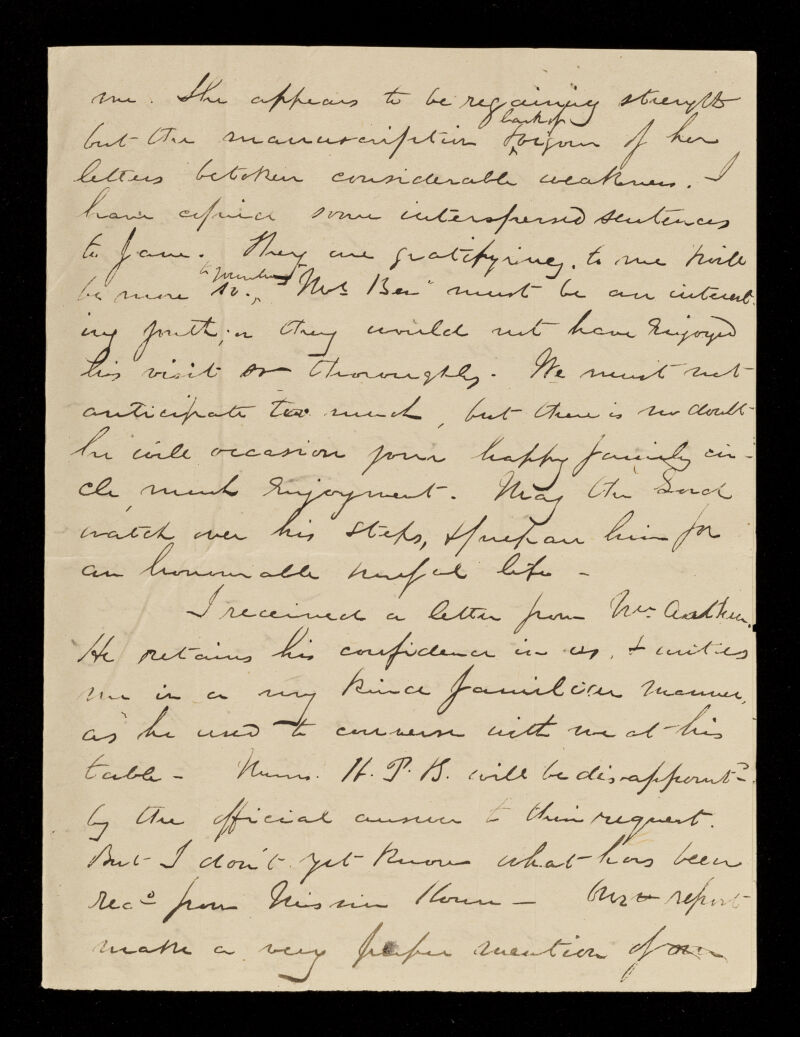 me. She appears to be regaining strength
but the manuscription lack of vigour of her
letters betoken considerable weakness. I
have copied some interspersed sentences
to Jane. They are gratifying to me & will
be more so. to yourself "Mr Ben" must be an interest-
ing youth; or they would not have enjoyed
his visit so thoroughly. We must not
anticipate too much, but there is no doubt
he will occasion your happy family cir-
cle, much enjoyment. May the Lord
watch over his steps, & prepare him for
an honourable useful life -
I received a letter from Mr. Arthur.
He retains his confidence in us, & writes
me in a very kind familiar manner,
as he used to converse with me at his
table - Messrs. H. P. B. will be disappointd.
by the official answer to their request.
But I don't yet know what has been
recd from Mission House - Our report
make a very proper mention of our